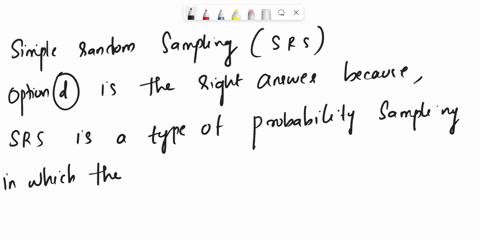 Simple random Sampling (SRS)
option (d) is the right answer because,
SRS is a type of probability Sampling
in which the